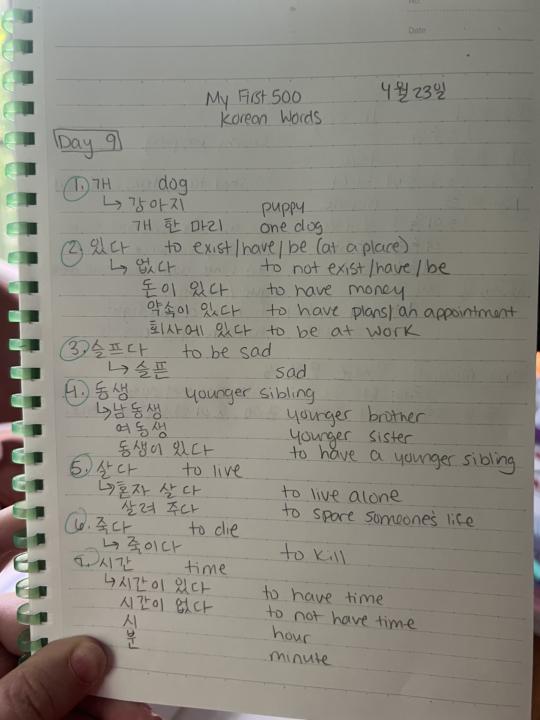 No.
Date
My First 500 4월 23일
Korean Words
Day 9
1. 개 dog
↳ 강아지 puppy
개 한 마리 one dog
2. 있다 to exist/have/be (at a place)
↳ 없다 to not exist/have/be
돈이 있다 to have money
약속이 있다 to have plans/an appointment
회사에 있다 to be at work
3. 슬프다 to be sad
↳ 슬픈 sad
4. 동생 younger sibling
↳ 남동생 younger brother
여동생 younger sister
동생이 있다 to have a younger sibling
5. 살다 to live
↳ 혼자 살다 to live alone
살려 주다 to spare someone's life
6. 죽다 to die
↳ 죽이다 to kill
7. 시간 time
↳ 시간이 있다 to have time
시간이 없다 to not have time
시 hour
분 minute